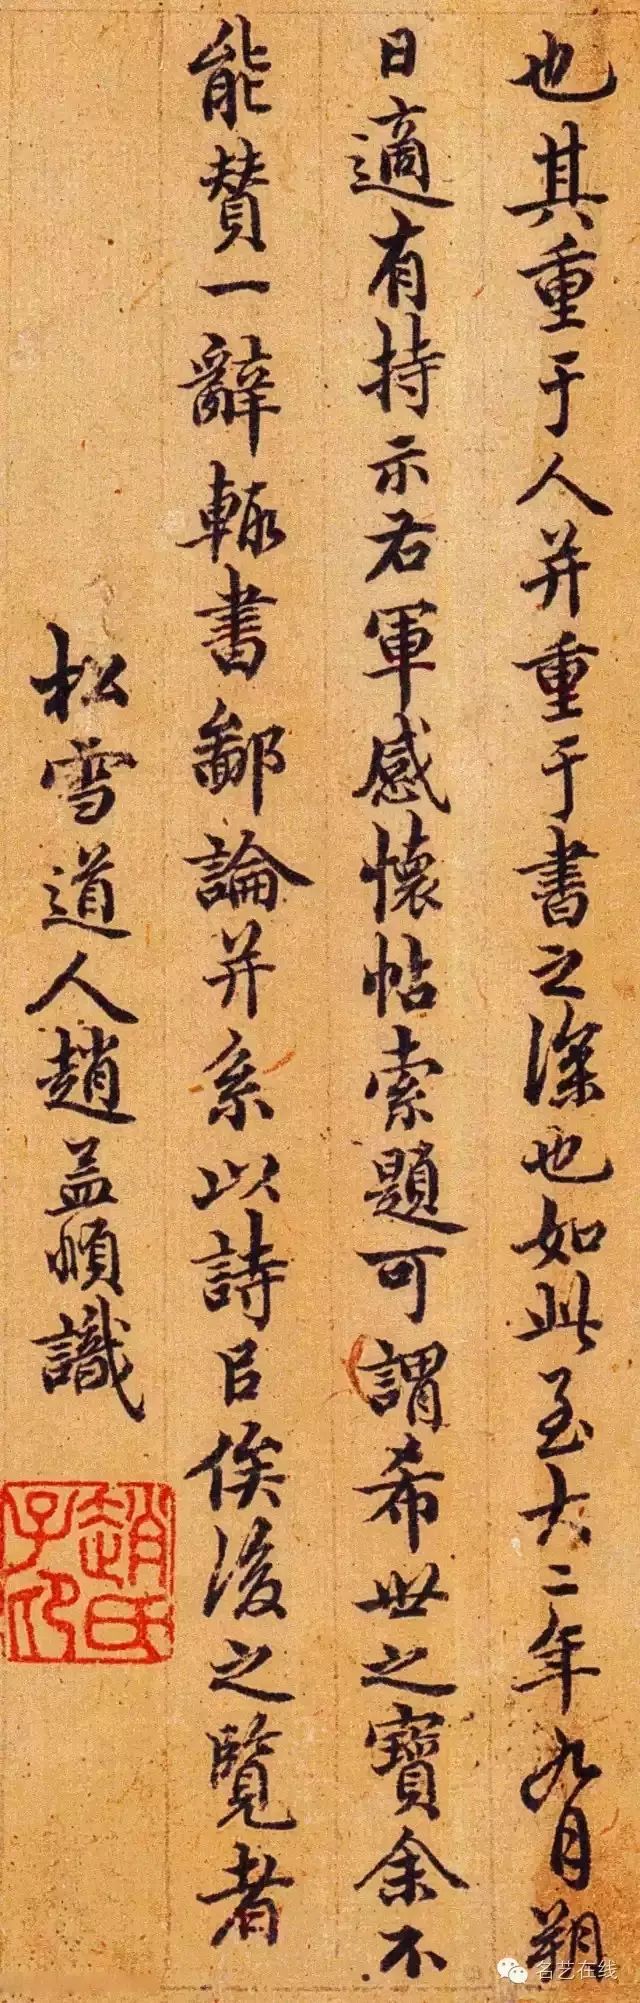 也其重于人并重于書之深也如此至大二年九月朔
日適有持示右軍感懷帖索題可謂希世之寶余不
能贊一辭輒書鄙論并系以詩㠯俟後之覽者
松雪道人趙孟頫識
趙氏子印
名艺在线